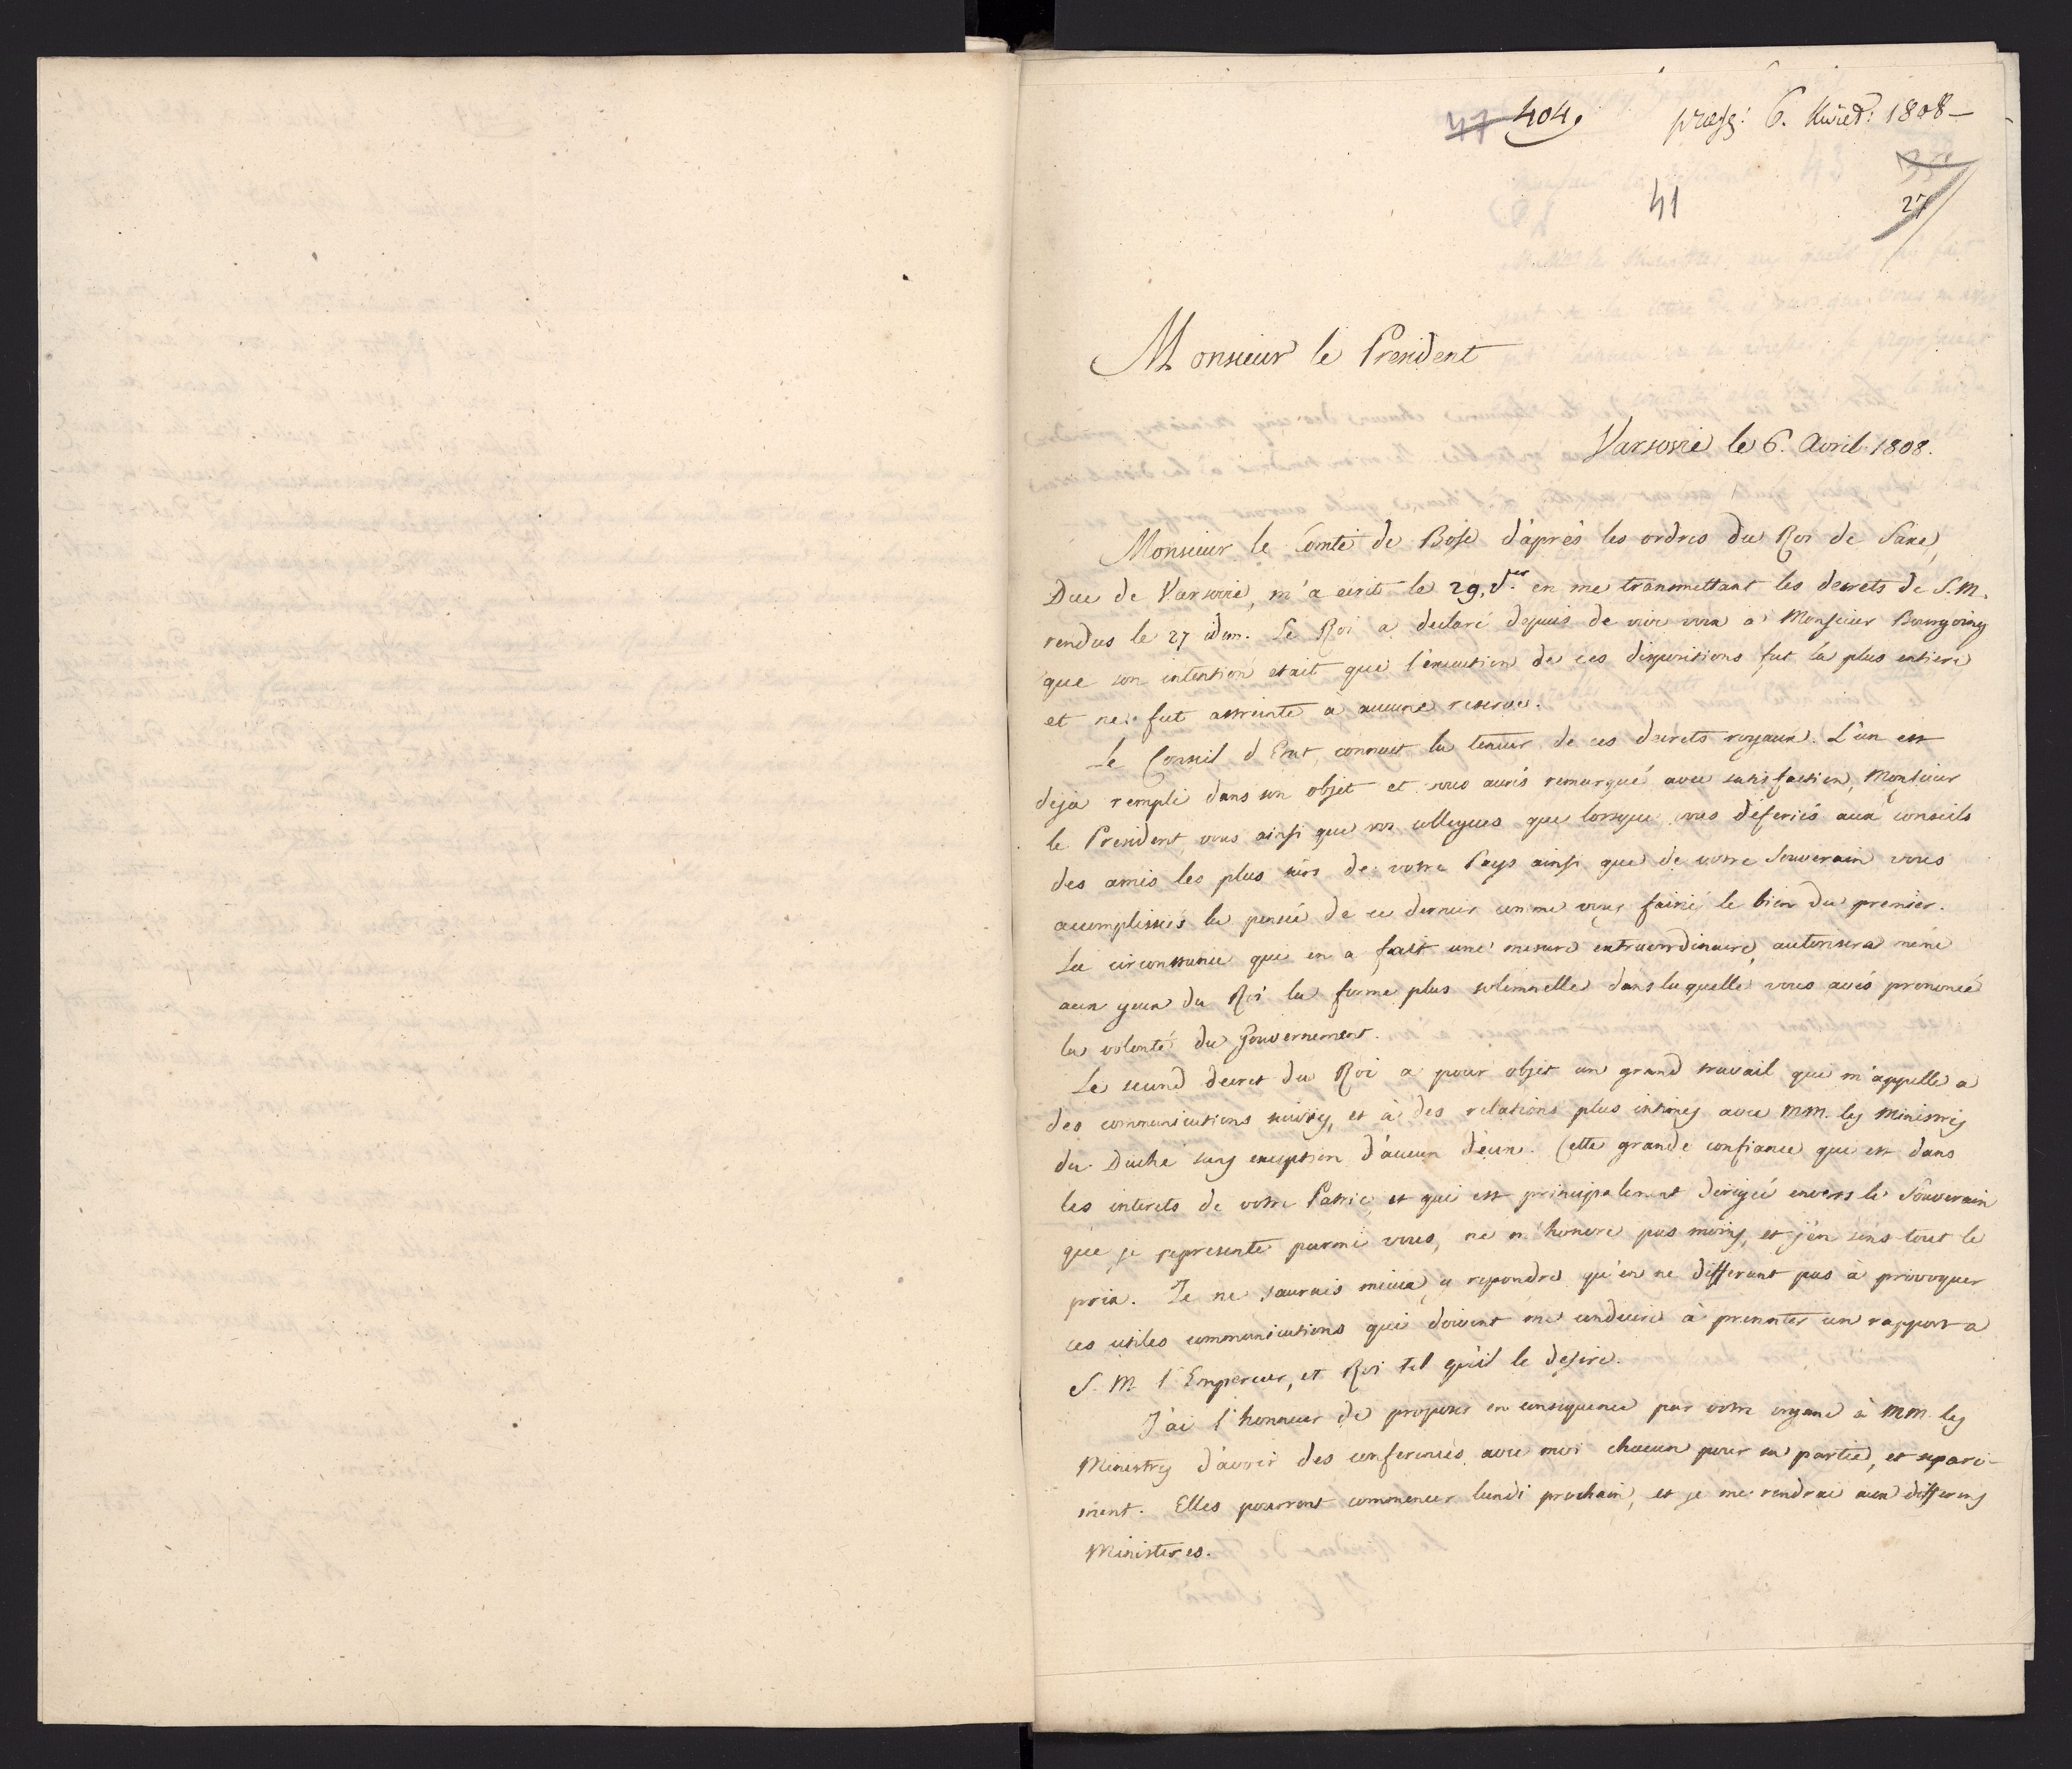 47 404. præs: 6. Kwiet: 1808 —
41
27
Monsieur le President
Varsovie le 6. Avril 1808.
Monsieur le Comte de Bose d'après les ordres du Roi de Saxe,
Duc de Varsovie, m'a ecrit le 29. der en me transmettant les decrets de S. M.
rendus le 27 idem. Le Roi a declaré depuis de vive voix a Monsieur Bourgoing
que son intention etait que l'execution de ces dispositions fut la plus entiere
et ne fut astreinte à aucune reserve.
Le Conseil d Etat connait la teneur de ces decrets royaux. L'un est
deja rempli dans son objet et vous aurés remarqué avec satisfaction, Monsieur
le President, vous ainsi que vos collegues que lorsque vous déferiés aux conseils
des amis les plus surs de votre Pays ainsi que de votre Souverain vous
acomplissiés la pensée de ce dernier comme vous faisié le bien du premier.
La circonstance qui en a fait une mesure extraordinaire, autorisera même
aux yeux du Roi la forme plus solemnelle dans laquelle vous avés prononcé
la volonté du Gouvernement.
Le second decret du Roi a pour objet un grand travail qui m'appelle a
des communications suivies, et à des relations plus intimes avec MM. les Ministres
du Duché sans exception d'aucun d'eux. Cette grande confiance qui est dans
les interets de votre Patrie, et qui est principalement dirigée envers le Souverain
que je represente parmi vous, ne m'honore pas moins, et j'en sens tout le
prix. Je ne saurais mieux y repondre qu'en ne differant pas à provoquer
ces utiles communications qui doivent me conduire à presenter un rapport a
S. M. l'Empereur, et Roi tel qu'il le desire.
J'ai l'honneur de proposer en consequence par votre organe à MM. les
Ministres d'avoir des conferences avec moi chacun pour sa partie, et separé-
ment. Elles pourront commencer lundi prochain, et je me rendrai aux differens
Ministeres.